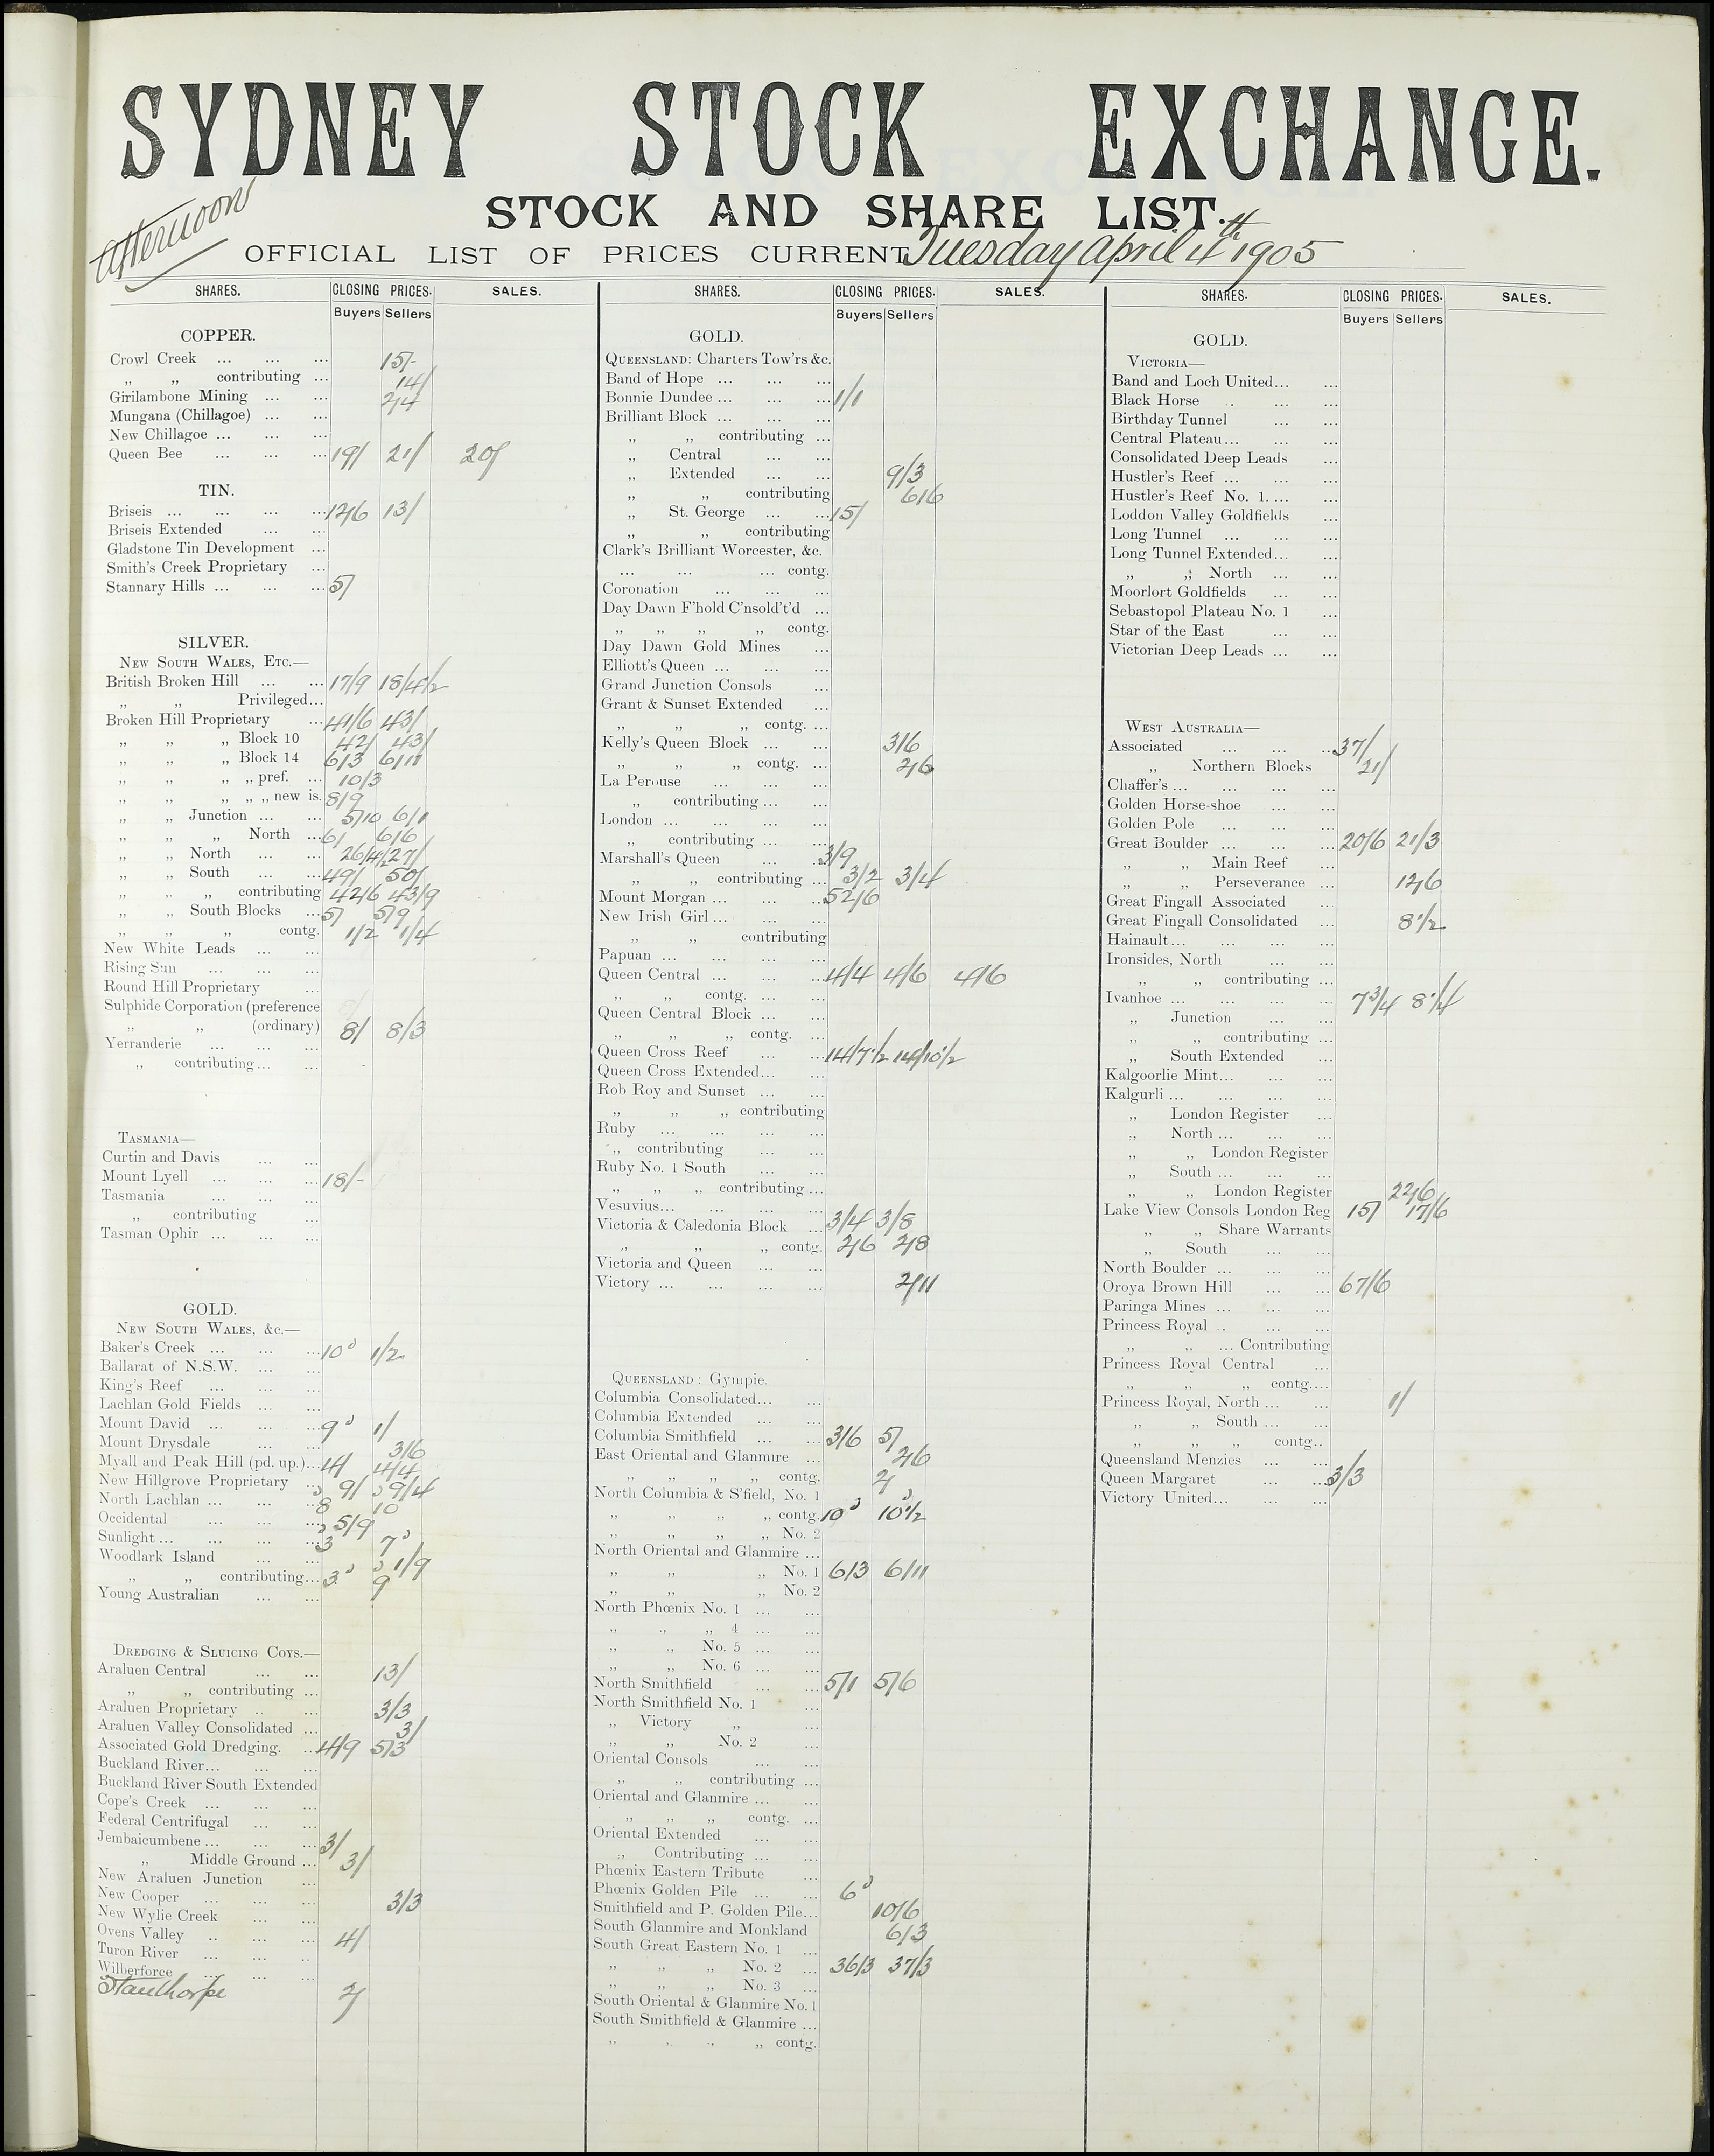 SYDNEY STOCK EXCHANGE.
STOCK AND SHARE LIST.
Afternoon
OFFICIAL LIST OF PRICES CURRENT Tuesday April 4th 1905
SHARES. CLOSING PRICES. SALES.
Buyers Sellers
COPPER.
Crowl Creek ... ... ... 15/-
„ „ contributing ... 14/
Girilambone Mining ... ... 2/4
Mungana (Chillagoe) ... ...
New Chillagoe ... ... ...
Queen Bee ... ... ... 19/ 21/ 20/
TIN.
Briseis ... ... ... ... 12/6 13/
Briseis Extended ... ...
Gladstone Tin Development ...
Smith's Creek Proprietary ...
Stannary Hills ... ... ... 5/
SILVER.
NEW SOUTH WALES, ETC.—
British Broken Hill ... ... 17/9 18/4½
„ „ Privileged...
Broken Hill Proprietary ... 41/6 43/
„ „ „ Block 10 42/ 43/
„ „ „ Block 14 6/3 6/11
„ „ „ „ pref. ... 10/3
„ „ „ „ „ new is. 8/9
„ „ Junction ... ... 5/10 6/1
„ „ „ North ... 6/ 6/6
„ „ North ... ... 26/4½ 27/
„ „ South ... ... 49/ 50/
„ „ „ contributing 42/6 43/9
„ „ South Blocks ... 5/ 5/9
„ „ „ contg. 1/2 1/4
New White Leads ... ...
Rising Sun ... ... ...
Round Hill Proprietary ...
Sulphide Corporation (preference
„ „ (ordinary) 8/ 8/3
Yerranderie ... ... ...
„ contributing... ...
TASMANIA—
Curtin and Davis ... ...
Mount Lyell ... ... ... 18/-
Tasmania ... ... ...
„ contributing ...
Tasman Ophir ... ... ...
GOLD.
NEW SOUTH WALES, &c.—
Baker's Creek ... ... ... 10d 1/2
Ballarat of N.S.W. ... ...
King's Reef ... ... ...
Lachlan Gold Fields ... ...
Mount David ... ... ... 9d 1/
Mount Drysdale ... ... 3/6
Myall and Peak Hill (pd. up.)... 4/ 4/4
New Hillgrove Proprietary ... 9/ 9/4
North Lachlan ... ... ... 8d 10d
Occidental ... ... ... 5/9
Sunlight ... ... ... ... 3d 7d
Woodlark Island ... ... 1/9
„ „ contributing... 3d 9d
Young Australian ... ...
DREDGING & SLUICING COYS.—
Araluen Central ... ... 13/
„ „ contributing ...
Araluen Proprietary .. ... 3/3
Araluen Valley Consolidated ... 3/
Associated Gold Dredging. ... 4/9 5/3
Buckland River... ... ...
Buckland River South Extended
Cope's Creek ... ... ...
Federal Centrifugal ... ...
Jembaicumbene ... ... ... 3/
„ Middle Ground ... 3/
New Araluen Junction ...
New Cooper ... ... ... 3/3
New Wylie Creek ... ...
Ovens Valley .. ... ... 4/
Turon River ... ... ..
Wilberforce ... ... ...
Stanthorpe 2/
SHARES. CLOSING PRICES. SALES.
Buyers Sellers
GOLD.
QUEENSLAND: Charters Tow'rs &c.
Band of Hope ... ... ...
Bonnie Dundee ... ... ... 1/1
Brilliant Block ... ... ...
„ „ contributing ...
„ Central ... ...
„ Extended ... ... 9/3
„ „ contributing 6/6
„ St. George ... ... 15/
„ „ contributing
Clark's Brilliant Worcester, &c.
... ... ... contg.
Coronation ... ... ...
Day Dawn F'hold C'nsold't'd ...
„ „ „ „ contg.
Day Dawn Gold Mines ...
Elliott's Queen ... ... ...
Grand Junction Consols ...
Grant & Sunset Extended ...
„ „ „ contg. ...
Kelly's Queen Block ... ... 3/6
„ „ „ contg. ... 2/6
La Perouse ... ... ...
„ contributing ... ...
London ... ... ... ...
„ contributing ... ...
Marshall's Queen ... ... 3/9
„ „ contributing ... 3/2 3/4
Mount Morgan ... ... ... 52/6
New Irish Girl ... ... ...
„ „ contributing
Papuan ... ... ... ...
Queen Central ... ... ... 4/4 4/6 4/6
„ „ contg. ... ...
Queen Central Block ... ...
„ „ „ contg. ...
Queen Cross Reef ... ... 14/7½ 14/10½
Queen Cross Extended... ...
Rob Roy and Sunset ... ...
„ „ „ contributing
Ruby ... ... ... ...
„ contributing ... ...
Ruby No. 1 South ... ...
„ „ „ contributing ...
Vesuvius... ... ... ...
Victoria & Caledonia Block ... 3/4 3/8
„ „ „ contg. 2/6 2/8
Victoria and Queen ... ...
Victory ... ... ... ... 2/11
QUEENSLAND: Gympie.
Columbia Consolidated... ...
Columbia Extended ... ...
Columbia Smithfield ... ... 3/6 5/
East Oriental and Glanmire ... 2/6
„ „ „ „ contg. 2/
North Columbia & S'field, No. 1
„ „ „ „ contg. 10d 10½d
„ „ „ „ No. 2
North Oriental and Glanmire ...
„ „ „ No. 1 6/3 6/11
„ „ „ No. 2
North Phœnix No. 1 ... ...
„ „ „ 4 ... ...
„ „ No. 5 ... ...
„ „ No. 6 ... ...
North Smithfield ... ... 5/1 5/6
North Smithfield No. 1 ...
„ Victory „ ...
„ „ No. 2 ...
Oriental Consols ... ...
„ „ contributing ...
Oriental and Glanmire ... ...
„ „ „ contg. ...
Oriental Extended ... ...
„ Contributing ... ...
Phœnix Eastern Tribute ...
Phœnix Golden Pile ... ... 6d
Smithfield and P. Golden Pile... 10/6
South Glanmire and Monkland 6/3
South Great Eastern No. 1 ...
„ „ „ No. 2 ... 36/3 37/3
„ „ „ No. 3 ...
South Oriental & Glanmire No. 1
South Smithfield & Glanmire ...
„ „ „ „ contg.
SHARES. CLOSING PRICES. SALES.
Buyers Sellers
GOLD.
VICTORIA—
Band and Loch United... ...
Black Horse .. ... ...
Birthday Tunnel ... ...
Central Plateau ... ... ...
Consolidated Deep Leads ...
Hustler's Reef ... ... ...
Hustler's Reef No. 1. ... ...
Loddon Valley Goldfields ...
Long Tunnel ... ... ...
Long Tunnel Extended... ...
„ „ North ... ...
Moorlort Goldfields ... ...
Sebastopol Plateau No. 1 ...
Star of the East ... ...
Victorian Deep Leads ... ...
WEST AUSTRALIA—
Associated ... ... ... 37/
„ Northern Blocks 21/
Chaffer's ... ... ... ...
Golden Horse-shoe ... ...
Golden Pole ... ... ...
Great Boulder ... ... ... 20/6 21/3
„ „ Main Reef ...
„ „ Perseverance ... 12/6
Great Fingall Associated ...
Great Fingall Consolidated ... 8½
Hainault... ... ... ...
Ironsides, North ... ...
„ „ contributing ...
Ivanhoe ... ... ... ... 7¾ 8¼
„ Junction ... ...
„ „ contributing ...
„ South Extended ...
Kalgoorlie Mint... ... ...
Kalgurli ... ... ... ...
„ London Register ...
„ North ... ... ...
„ „ London Register
„ South ... ... ...
„ „ London Register 22/6
Lake View Consols London Reg 15/ 17/6
„ „ Share Warrants
„ South ... ...
North Boulder ... ... ...
Oroya Brown Hill ... ... 67/6
Paringa Mines ... ... ...
Princess Royal .. ... ...
„ „ ... Contributing
Princess Royal Central ...
„ „ „ contg....
Princess Royal, North ... ... 1/
„ „ South ... ...
„ „ „ contg..
Queensland Menzies ... ...
Queen Margaret ... ... 3/3
Victory United... ... ...